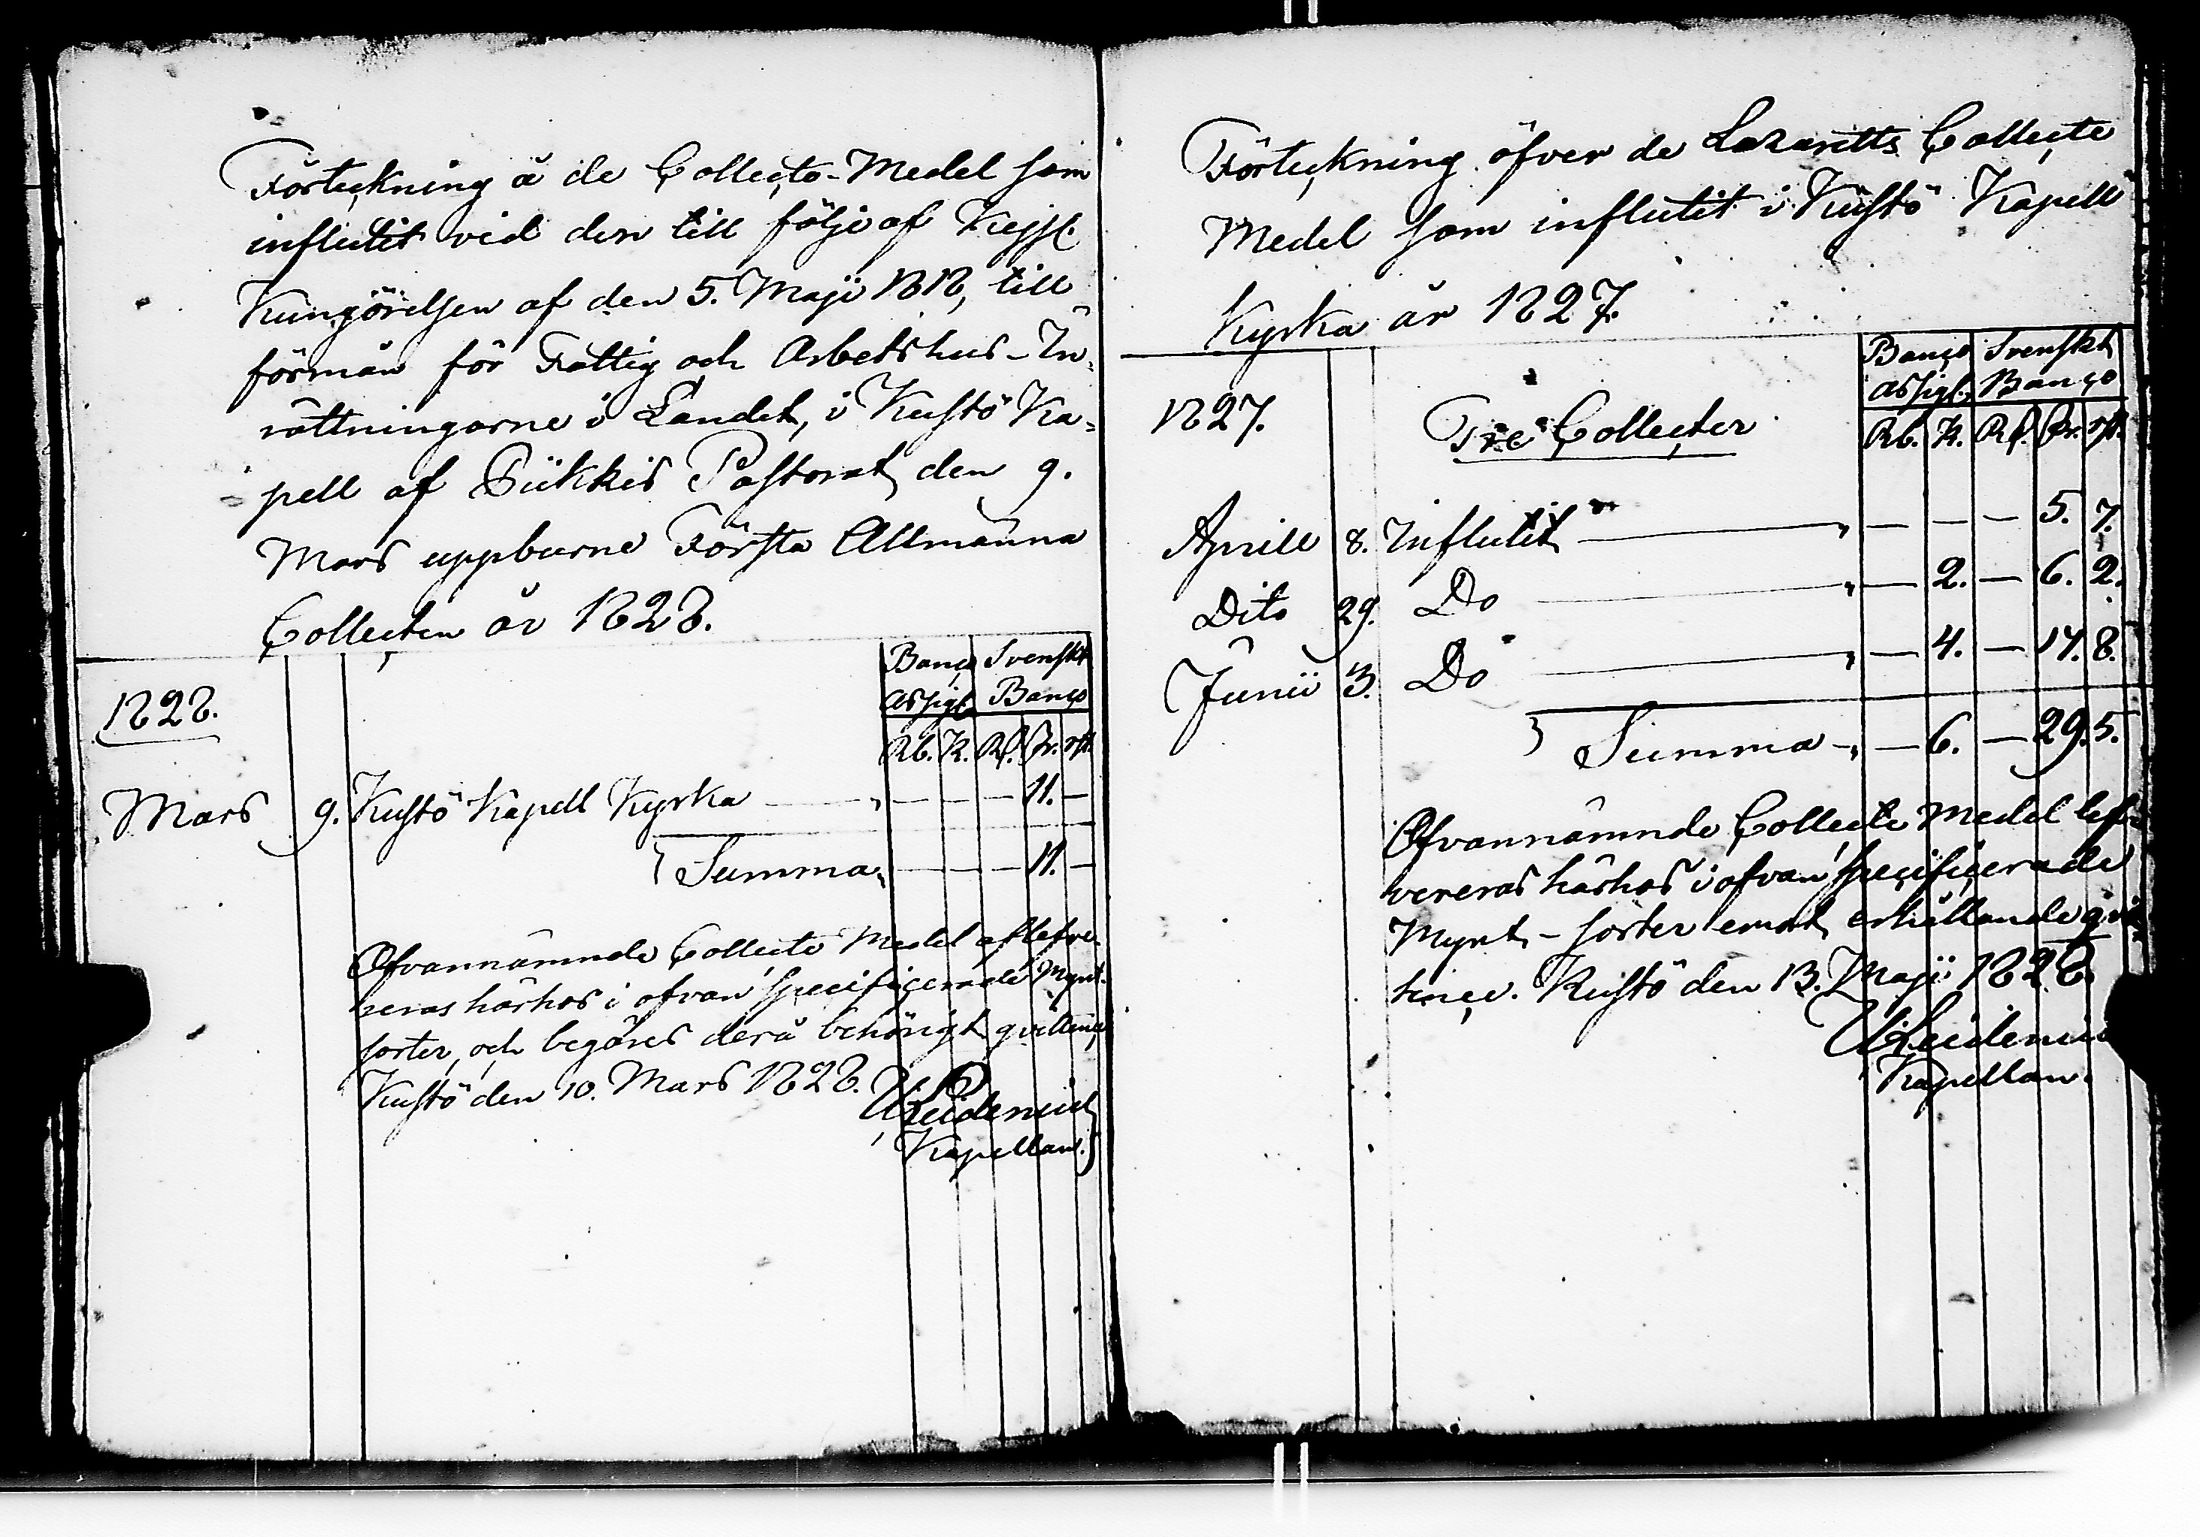 Förteckning å de Collecte-Medel som
influtit vid den till följe af Kejsl.
Kungörelsen af den 5. Maji 1818, till
förmån för Fattig och Arbetshus-In-
rättningarne i Landet, i Kustö Ka-
pell af Piikkis Pastorat, den 9.
Mars uppburne Första Allmänna
Collecten år 1828.
Banco Svenskt
Assigt. Banco
1828.
Rb. K. Rd. sk. rst.
Mars 9. Kustö Kapell Kyrka — „ — — — 11. —
Summa „ — — — 11. —
Ofvannämnde Collecte Medel aflefve-
reras härhos i ofvan specificerade Mynt-
sorter, och begäres derå behörigt qvittence,
Kustö den 10. Mars 1828.
Kapellan.
Förteckning öfver de Lazaretts Collecte
Medel som influtit i Kustö Kapell
Kyrka år 1827.
Banco Svenskt
Assigt. Banco
1827. Tre Collecter Rb. K. Rd. sk. rst.
Aprill 8. Influtit — „ — — — 5. 7.
Dito 29. Do — „ — 2. — 6. 2.
Junii 3. Do — „ — 4. — 17. 8.
Summa — „ — 6. — 29. 5.
Ofvannämnde Collecte Medel lefve-
vereras härhos i ofvan specificerade
Mynt-sorter emot erhållande qvit-
tence. Kustö den 13. Maji 1828.
Kapellan.